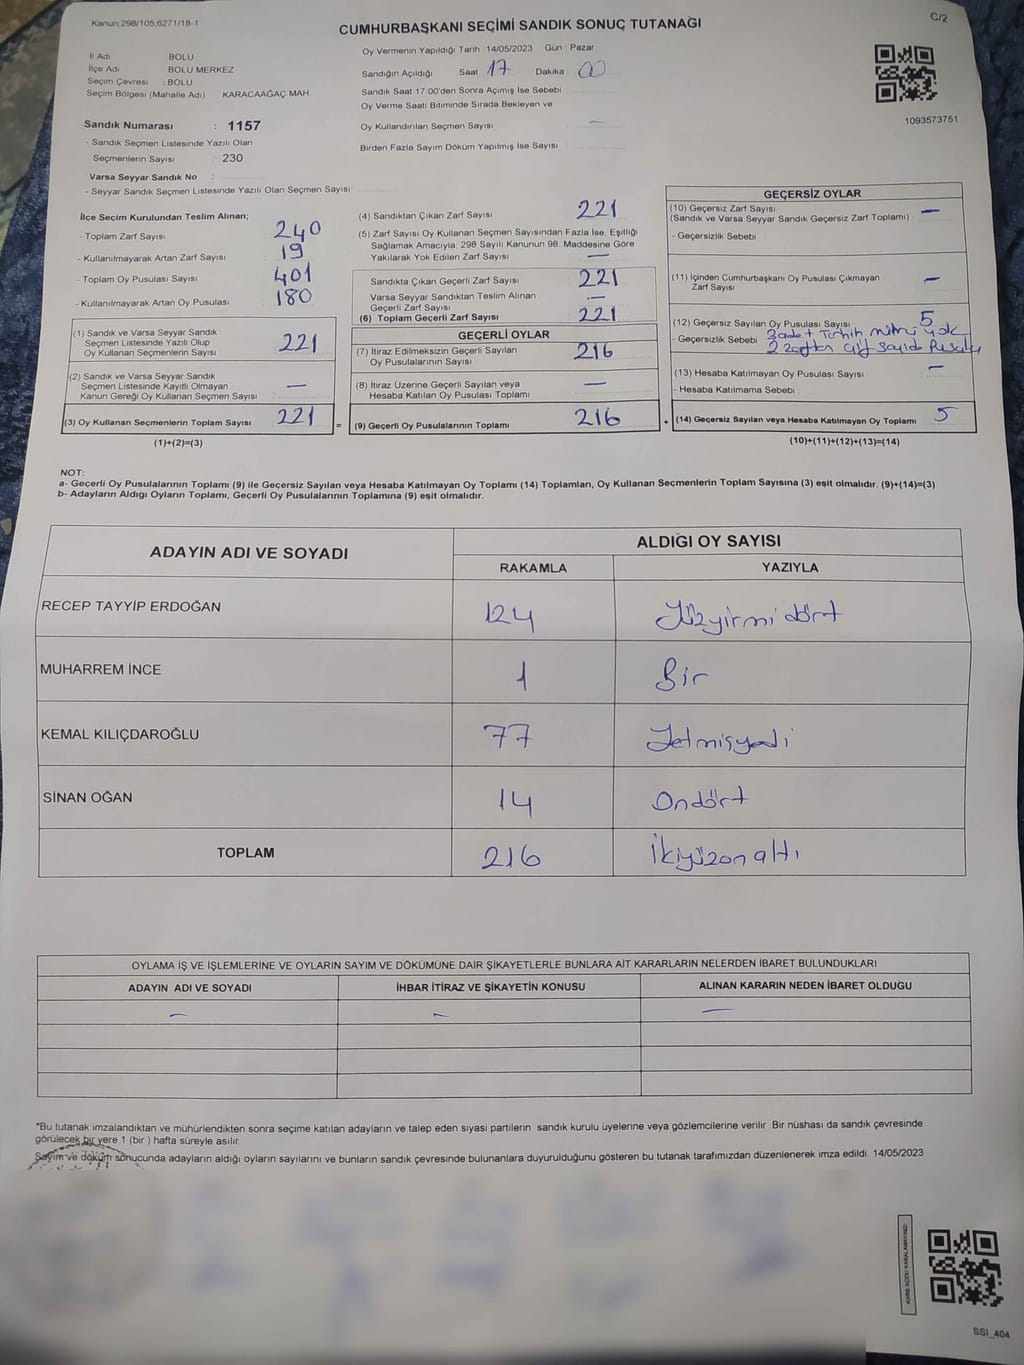 Kanun;298/105;6271/18-1
CUMHURBAŞKANI SEÇİMİ SANDIK SONUÇ TUTANAĞI
C/2
İl Adı BOLU
İlçe Adı BOLU MERKEZ
Seçim Çevresi : BOLU
Seçim Bölgesi (Mahalle Adı) KARACAAĞAÇ MAH.
Oy Vermenin Yapıldığı Tarih 14/05/2023 Gün Pazar
Sandığın Açıldığı Saat 17 Dakika 00
Sandık Saat 17:00'den Sonra Açımış İse Sebebi
Oy Verme Saati Bitiminde Sırada Bekleyen ve
Oy Kullandırılan Seçmen Sayısı —
Birden Fazla Sayım Döküm Yapılmış İse Sayısı
1093573751
Sandık Numarası : 1157
- Sandık Seçmen Listesinde Yazılı Olan
Seçmenlerin Sayısı : 230
Varsa Seyyar Sandık No :
- Seyyar Sandık Seçmen Listesinde Yazılı Olan Seçmen Sayısı
İlçe Seçim Kurulundan Teslim Alınan;
- Toplam Zarf Sayısı 240
- Kullanılmayarak Artan Zarf Sayısı 19
- Toplam Oy Pusulası Sayısı 401
- Kullanılmayarak Artan Oy Pusulası 180
(1) Sandık ve Varsa Seyyar Sandık
Seçmen Listesinde Yazılı Olup
Oy Kullanan Seçmenlerin Sayısı 221
(2) Sandık ve Varsa Seyyar Sandık
Seçmen Listesinde Kayıtlı Olmayan
Kanun Gereği Oy Kullanan Seçmen Sayısı —
(3) Oy Kullanan Seçmenlerin Toplam Sayısı 221
(1)+(2)=(3)
(4) Sandıktan Çıkan Zarf Sayısı 221
(5) Zarf Sayısı Oy Kullanan Seçmen Sayısından Fazla İse, Eşitliği
Sağlamak Amacıyla; 298 Sayılı Kanunun 98. Maddesine Göre
Yakılarak Yok Edilen Zarf Sayısı —
Sandıkta Çıkan Geçerli Zarf Sayısı 221
Varsa Seyyar Sandıktan Teslim Alınan
Geçerli Zarf Sayısı —
(6) Toplam Geçerli Zarf Sayısı 221
GEÇERLİ OYLAR
(7) İtiraz Edilmeksizin Geçerli Sayılan
Oy Pusulalarının Sayısı 216
(8) İtiraz Üzerine Geçerli Sayılan veya
Hesaba Katılan Oy Pusulası Toplamı —
= (9) Geçerli Oy Pusulalarının Toplamı 216
GEÇERSİZ OYLAR
(10) Geçersiz Zarf Sayısı
(Sandık ve Varsa Seyyar Sandık Geçersiz Zarf Toplamı) : —
- Geçersizlik Sebebi :
(11) İçinden Cumhurbaşkanı Oy Pusulası Çıkmayan
Zarf Sayısı —
(12) Geçersiz Sayılan Oy Pusulası Sayısı 5
- Geçersizlik Sebebi 3 adet Tercih mührü yok
2 zarftan çift sayıda Pusula
(13) Hesaba Katılmayan Oy Pusulası Sayısı —
- Hesaba Katılmama Sebebi :
+ (14) Geçersiz Sayılan veya Hesaba Katılmayan Oy Toplamı 5
(10)+(11)+(12)+(13)=(14)
NOT:
a- Geçerli Oy Pusulalarının Toplamı (9) ile Geçersiz Sayılan veya Hesaba Katılmayan Oy Toplamı (14) Toplamları, Oy Kullanan Seçmenlerin Toplam Sayısına (3) eşit olmalıdır. (9)+(14)=(3)
b- Adayların Aldığı Oyların Toplamı, Geçerli Oy Pusulalarının Toplamına (9) eşit olmalıdır.
ADAYIN ADI VE SOYADI
ALDIĞI OY SAYISI
RAKAMLA YAZIYLA
RECEP TAYYİP ERDOĞAN 124 Yüzyirmi dört
MUHARREM İNCE 1 Bir
KEMAL KILIÇDAROĞLU 77 Yetmişyedi
SİNAN OĞAN 14 Ondört
TOPLAM 216 İkiyüzonaltı
OYLAMA İŞ VE İŞLEMLERİNE VE OYLARIN SAYIM VE DÖKÜMÜNE DAİR ŞİKAYETLERLE BUNLARA AİT KARARLARIN NELERDEN İBARET BULUNDUKLARI
ADAYIN ADI VE SOYADI İHBAR İTİRAZ VE ŞİKAYETİN KONUSU ALINAN KARARIN NEDEN İBARET OLDUĞU
— — —
"Bu tutanak imzalandıktan ve mühürlendikten sonra seçime katılan adayların ve talep eden siyasi partilerin sandık kurulu üyelerine veya gözlemcilerine verilir. Bir nüshası da sandık çevresinde
görülecek bir yere 1 (bir ) hafta süreyle asılır.
Sayım ve döküm sonucunda adayların aldığı oyların sayılarını ve bunların sandık çevresinde bulunanlara duyurulduğunu gösteren bu tutanak tarafımızdan düzenlenerek imza edildi. 14/05/2023
SSI_404